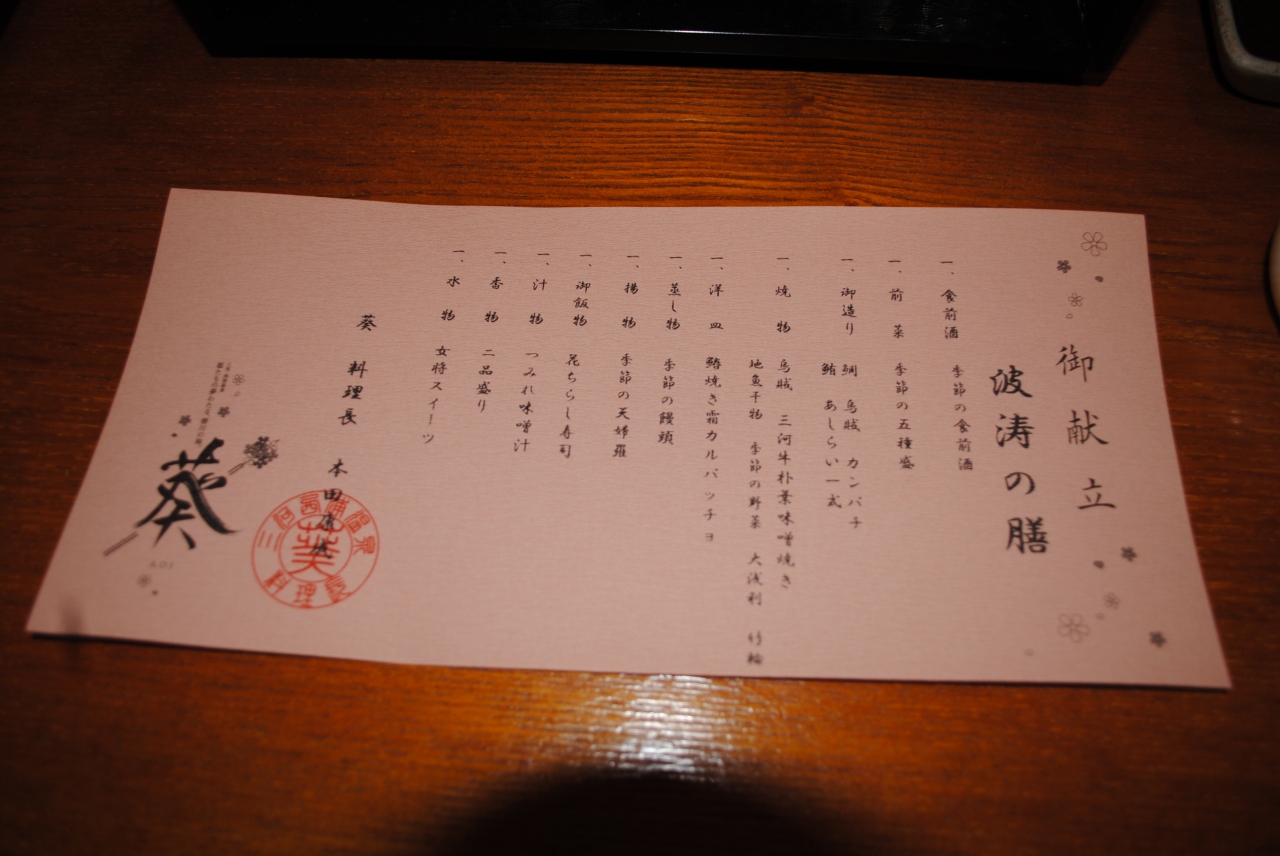 御献立
波涛の膳
一、食前酒 季節の食前酒
一、前菜 季節の五種盛
一、御造り 鯛 烏賊 カンパチ
鮪 あしらい一式
一、焼物 烏賊 三河牛朴葉味噌焼き
地魚干物 季節の野菜 大浅利 竹輪
一、洋皿 鰆焼き霜カルパッチョ
一、蒸し物 季節の饅頭
一、揚物 季節の天婦羅
一、御飯物 花ちらし寿司
一、汁物 つみれ味噌汁
一、香物 二品盛り
一、水物 女将スイーツ
葵 料理長 本田
三河西浦温泉
葵
料理長
葵
AOI